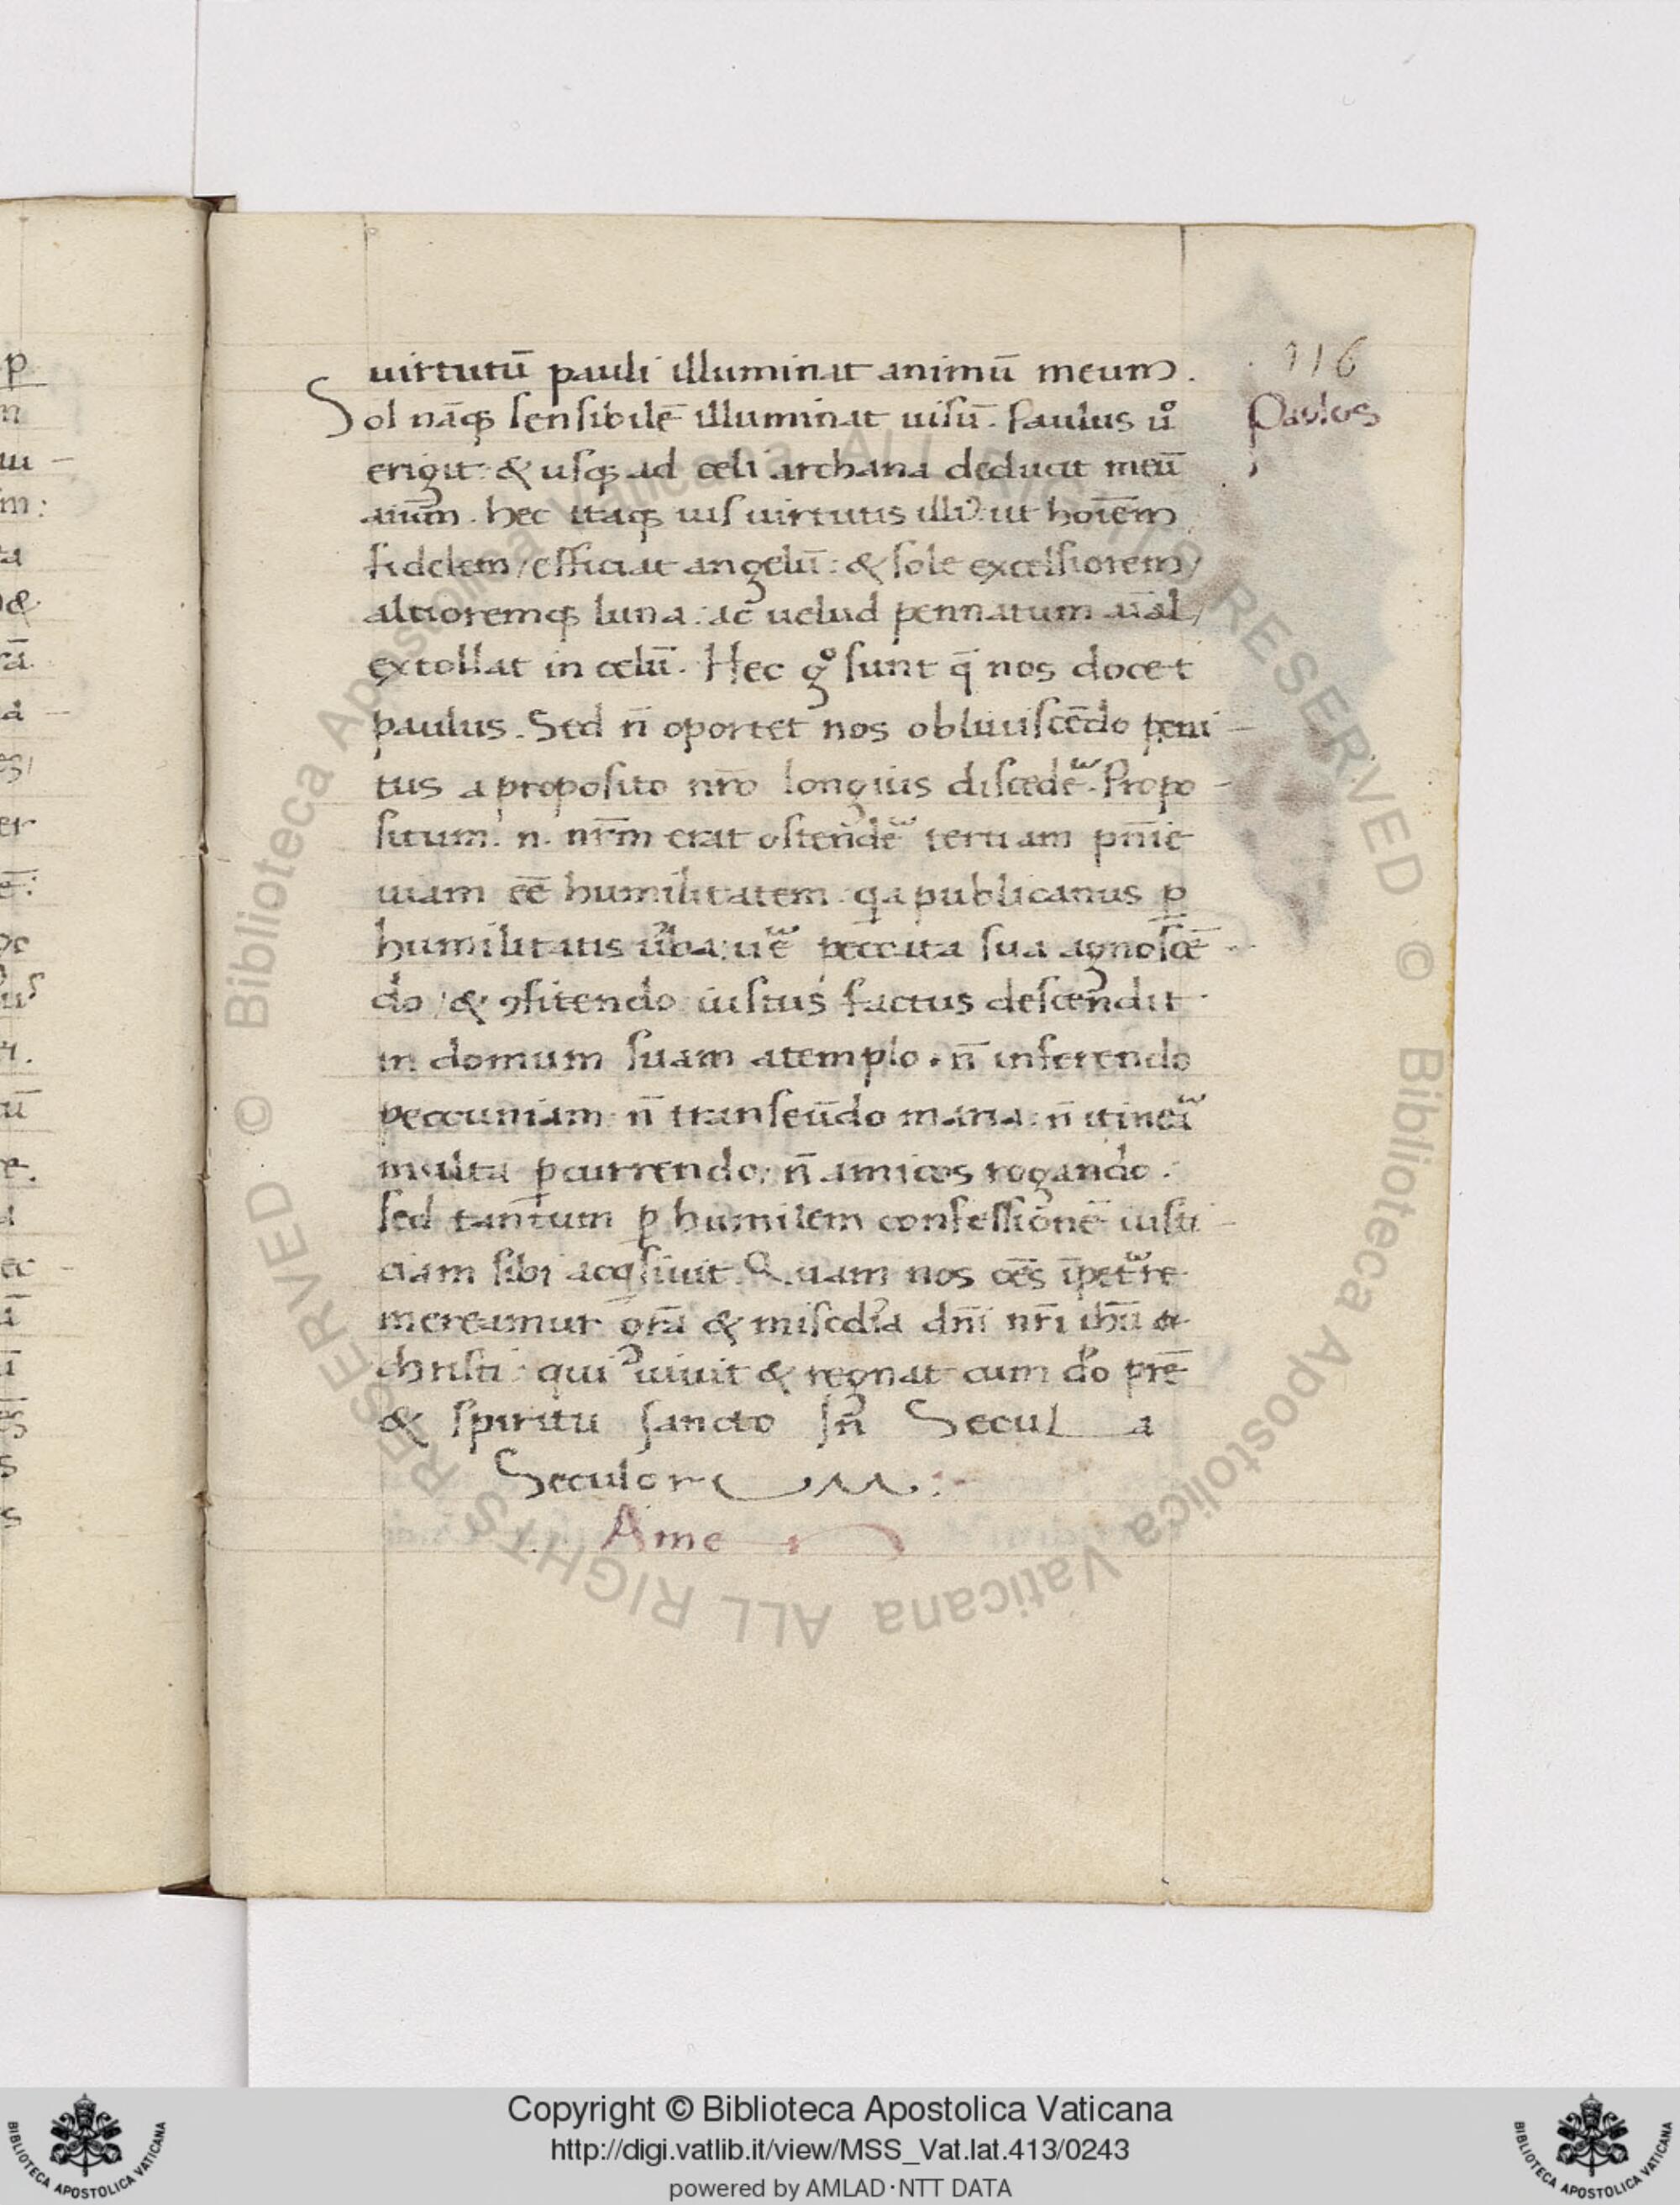 p
n
m:
ta
&
er
ec
s
116
uirtutū pauli illuminat animū meum.
Sol nāqꝫ sensibilē illuminat uisū. Paulus uͦ
Paulus
erigit: & usqꝫ ad celi archana deducit meū
aīum. hec itaqꝫ uis uirtutis illiꝰ: ut hoīem
fidelem / efficiat angelū: & sole excelsiorem /
altioremqꝫ luna: ac uelud pennatum aīal /
extollat in celū. Hec gͦ sunt q̄ nos docet
paulus. Sed n̄ oportet nos obliuiscēdo peni-
tus a proposito nr̄o longius discedē. Propo-
situm. n. nr̄m erat ostendē tertiam pn̄ie
uiam eē humilitatem. qa publicanus ꝑ
humilitatis ūba: uē peccata sua agnoscē-
do / & ꝯfitendo iustus factus descendit
in domum suam atemplo. n̄ inferendo
peccuniam: n̄ transeūdo maria: n̄ itineā
multa ꝑcurrendo: n̄ amicos rogando.
sed tantum ꝑ humilem confessionē iusti-
ciam sibi acqsiuit. Quam nos oēs īpetͣre
mereamur gr̄a & misc̄dia dn̄i nr̄i ihū
christi: qui uiuit & regnat cum do pr̄e
& spiritu sancto In Secula
Seculorum:-
Amen
© Biblioteca Apostolica Vaticana ALL RIGHTS RESERVED © Biblioteca Apostolica Vaticana ALL RIGHTS RESERVED
Copyright © Biblioteca Apostolica Vaticana
http://digi.vatlib.it/view/MSS_Vat.lat.413/0243
powered by AMLAD·NTT DATA
BIBLIOTECA APOSTOLICA VATICANA
BIBLIOTECA APOSTOLICA VATICANA